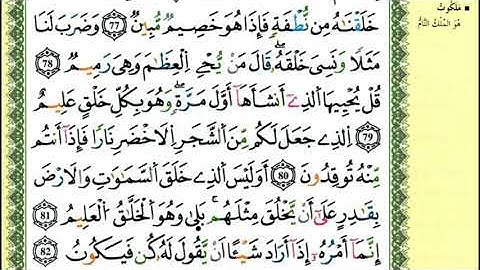 مَلَكُوتُ
هُوَ المُلْكُ التَّامُّ
خَلَقْنَٰهُ مِن نُّطْفَةٍ فَإِذَا هُوَ خَصِيمٌ مُّبِينٌ 77 وَضَرَبَ لَنَا
مَثَلًا وَنَسِىَ خَلْقَهُۥ قَالَ مَنْ يُّحْيِ اِ۬لْعِظَٰمَ وَهِىَ رَمِيمٌ 78
قُلْ يُحْيِيهَا اَ۬لذِےٓ أَنشَأَهَآ أَوَّلَ مَرَّةٍ وَهُوَ بِكُلِّ خَلْقٍ عَلِيمٌ
79 اِ۬لذِے جَعَلَ لَكُم مِّنَ اَ۬لشَّجَرِ اِ۬لَاخْضَرِ نَارًا فَإِذَآ أَنتُم
مِّنْهُ تُوقِدُونَ 80 أَوَلَيْسَ اَ۬لذِے خَلَقَ اَ۬لسَّمَٰوَٰتِ وَالَارْضَ
بِقَٰدِرٍ عَلَىٰٓ أَنْ يَّخْلُقَ مِثْلَهُم بَلَىٰ وَهُوَ اَ۬لْخَلَّٰقُ اُ۬لْعَلِيمُ
81 إِنَّمَآ أَمْرُهُۥٓ إِذَآ أَرَادَ شَيْـًٔا اَنْ يَّقُولَ لَهُۥ كُن فَيَكُونُ 82